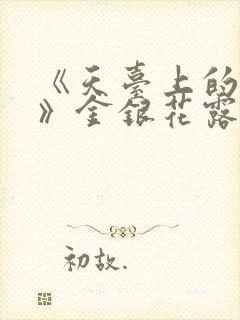 《天臺上的
》金銀花露
初故.